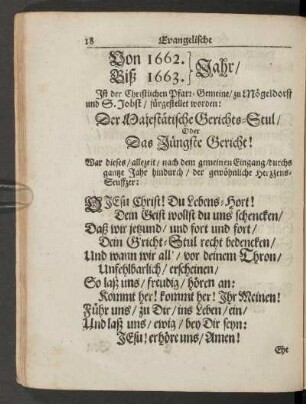 18 Evangelische
Von 1662. } Jahr/
Biß 1663. }
Ist der Christlichen Pfarr-Gemeine/ zu Mögeldorff
und S. Jobst/ fürgestellet worden:
Der Majestätische Gerichts-Stul/
Oder
Das Jüngste Gericht!
War dieses/ allezeit/ nach dem gemeinen Eingang/ durchs
gantze Jahr hindurch/ der gewöhnliche Hertzens-
Seuffzer:
O JEsu Christ! Du Lebens-Hort!
Dein Geist wollst du uns schencken/
Daß wir jetzund/ und fort und fort/
Dein Gricht-Stul recht bedencken/
Und wann wir all'/ vor deinem Thron/
Unfehlbarlich/ erscheinen/
So laß uns/ freudig/ hören an:
Kommt her! kommt her! Ihr Meinen!
Führ uns/ zu Dir/ ins Leben/ ein/
Und laß uns/ ewig/ bey Dir seyn:
JEsu! erhöre uns/ Amen!
Ehe